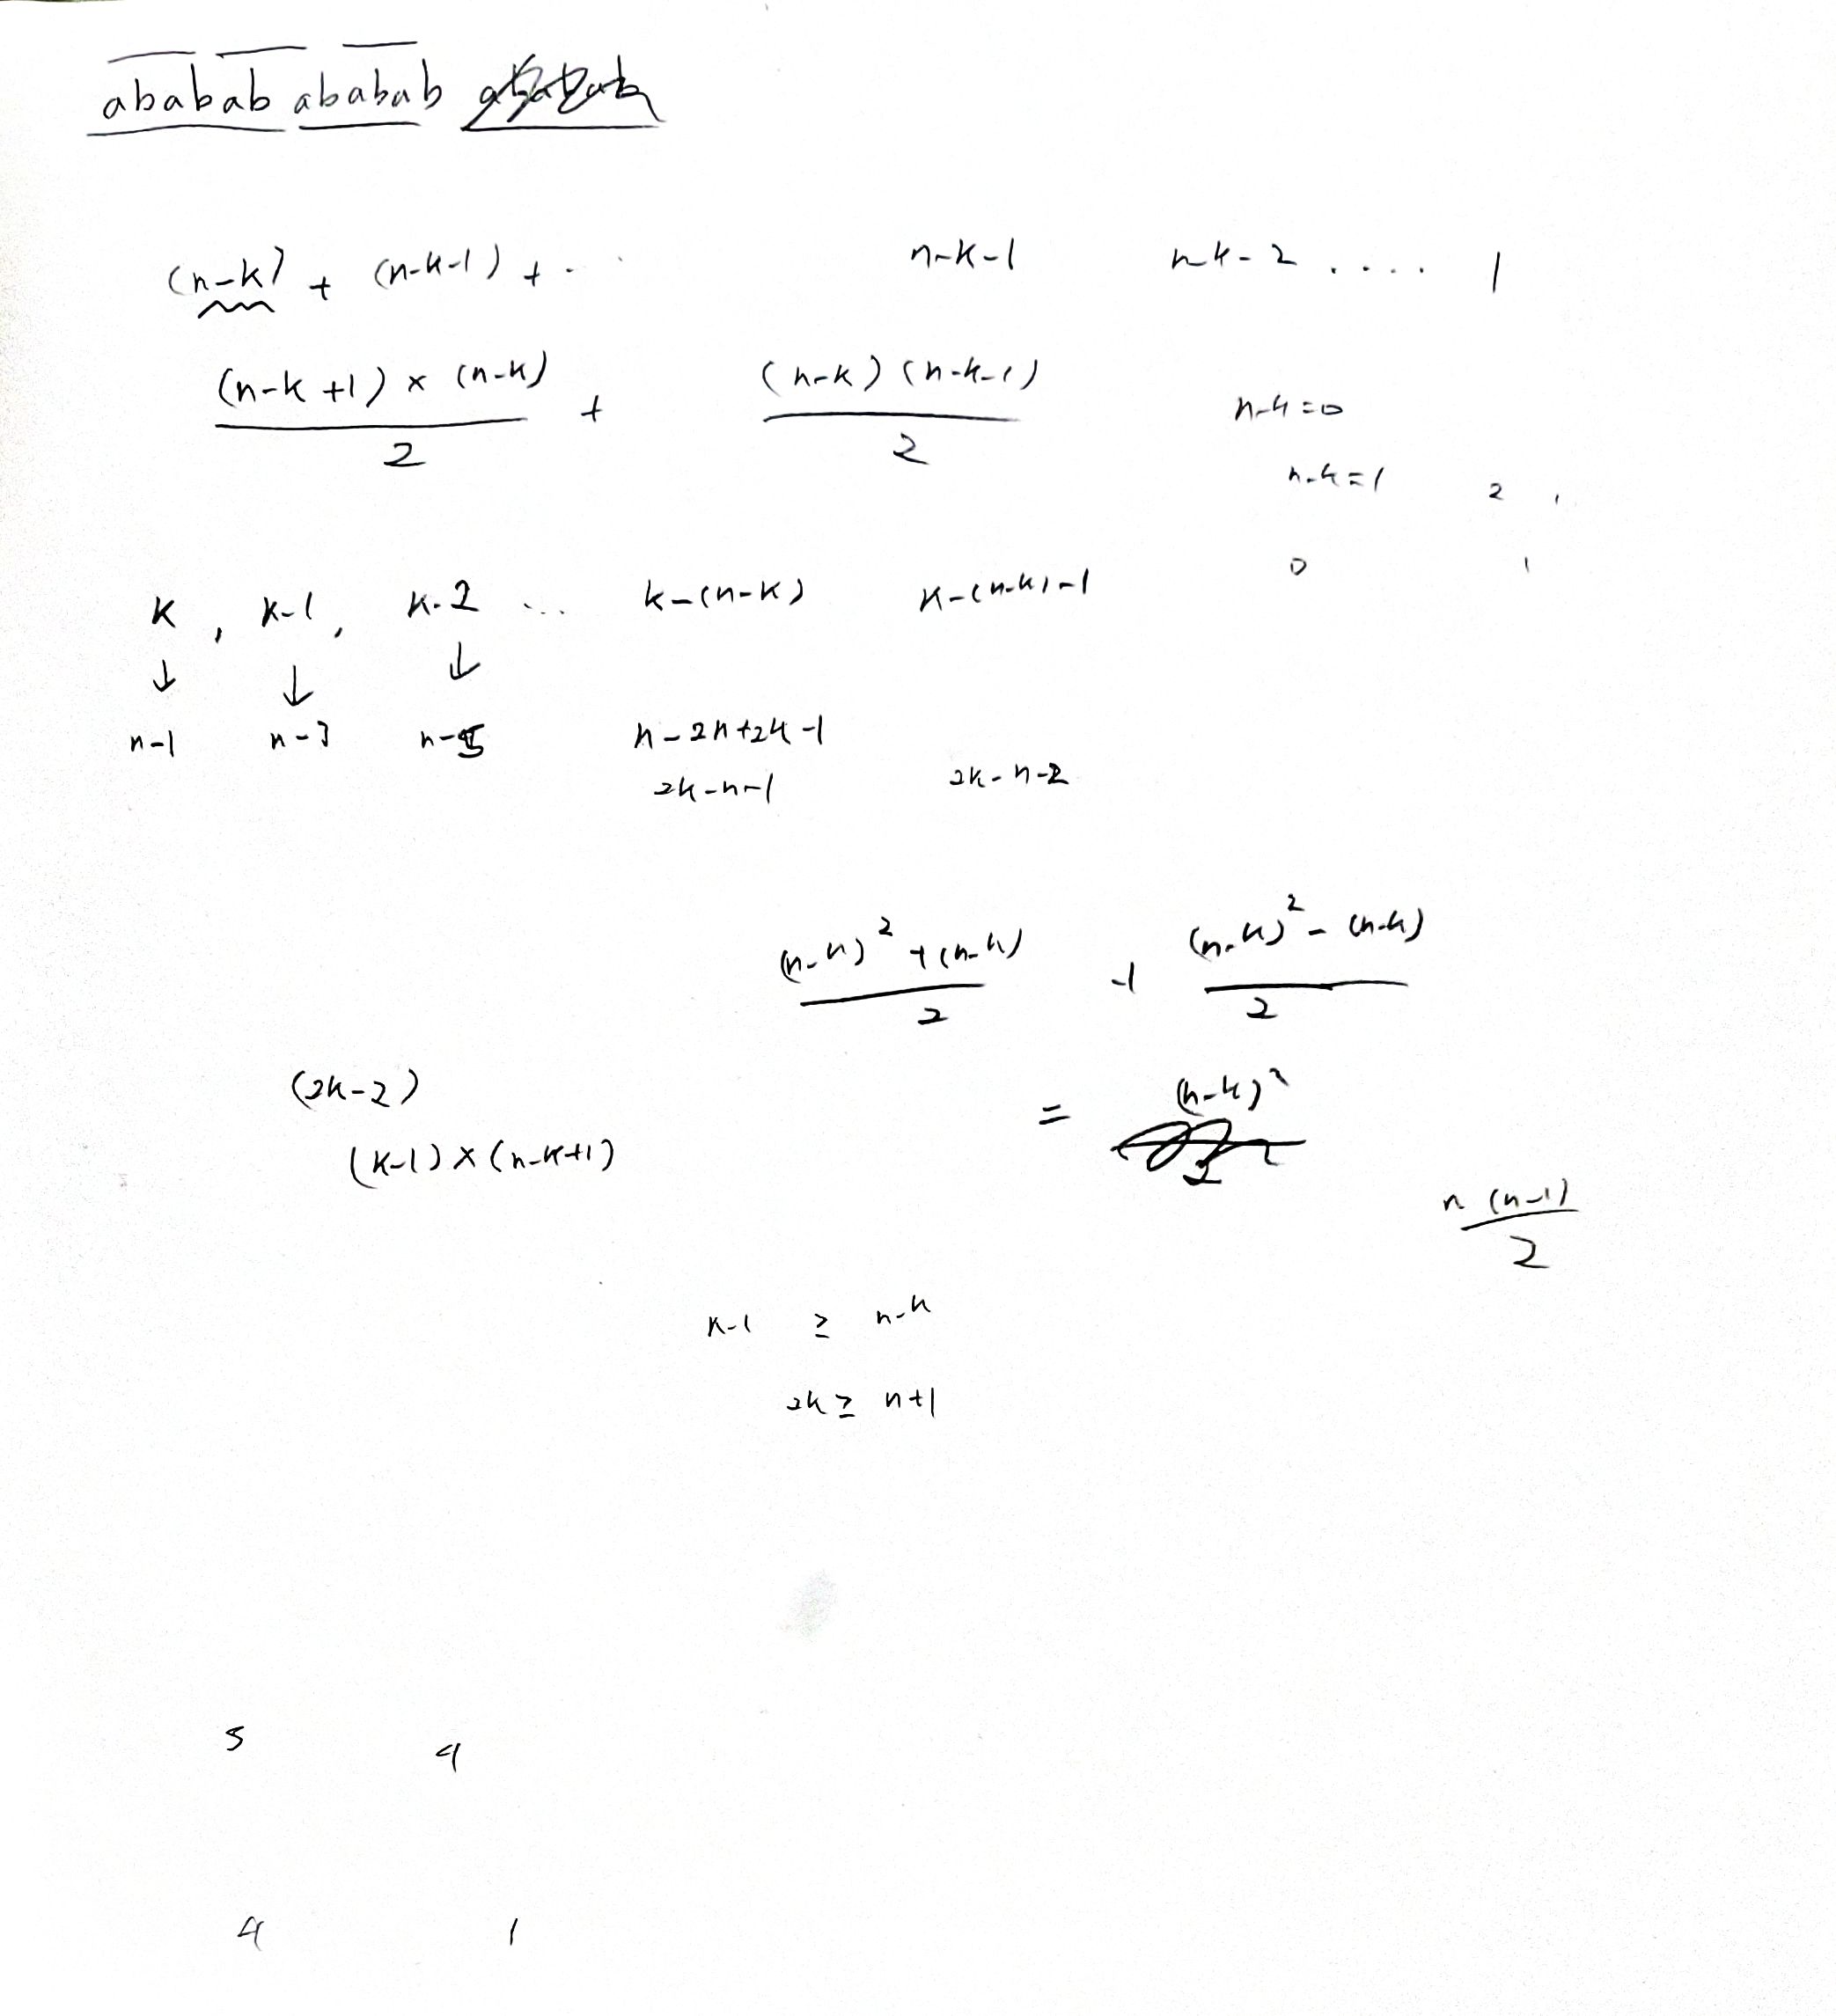 ababab ababab
(n-k) + (n-k-1) + ... n-k-1 n-k-2 .... 1
(n-k+1) × (n-k) / 2 + (n-k) (n-k-1) / 2 n-k=0
n-k=1 2 1
0 1
k , k-1 , k-2 ... k-(n-k) k-(n-k)-1
↓ ↓ ↓
n-1 n-3 n-5 n-2n+2k-1
2k-n-1 2k-n-2
(n-k)² + (n-k) / 2 + (n-k)² - (n-k) / 2
(2k-2) = (n-k)²
(k-1) × (n-k+1)
n (n-1) / 2
k-1 ≥ n-k
2k ≥ n+1
5 4
4 1